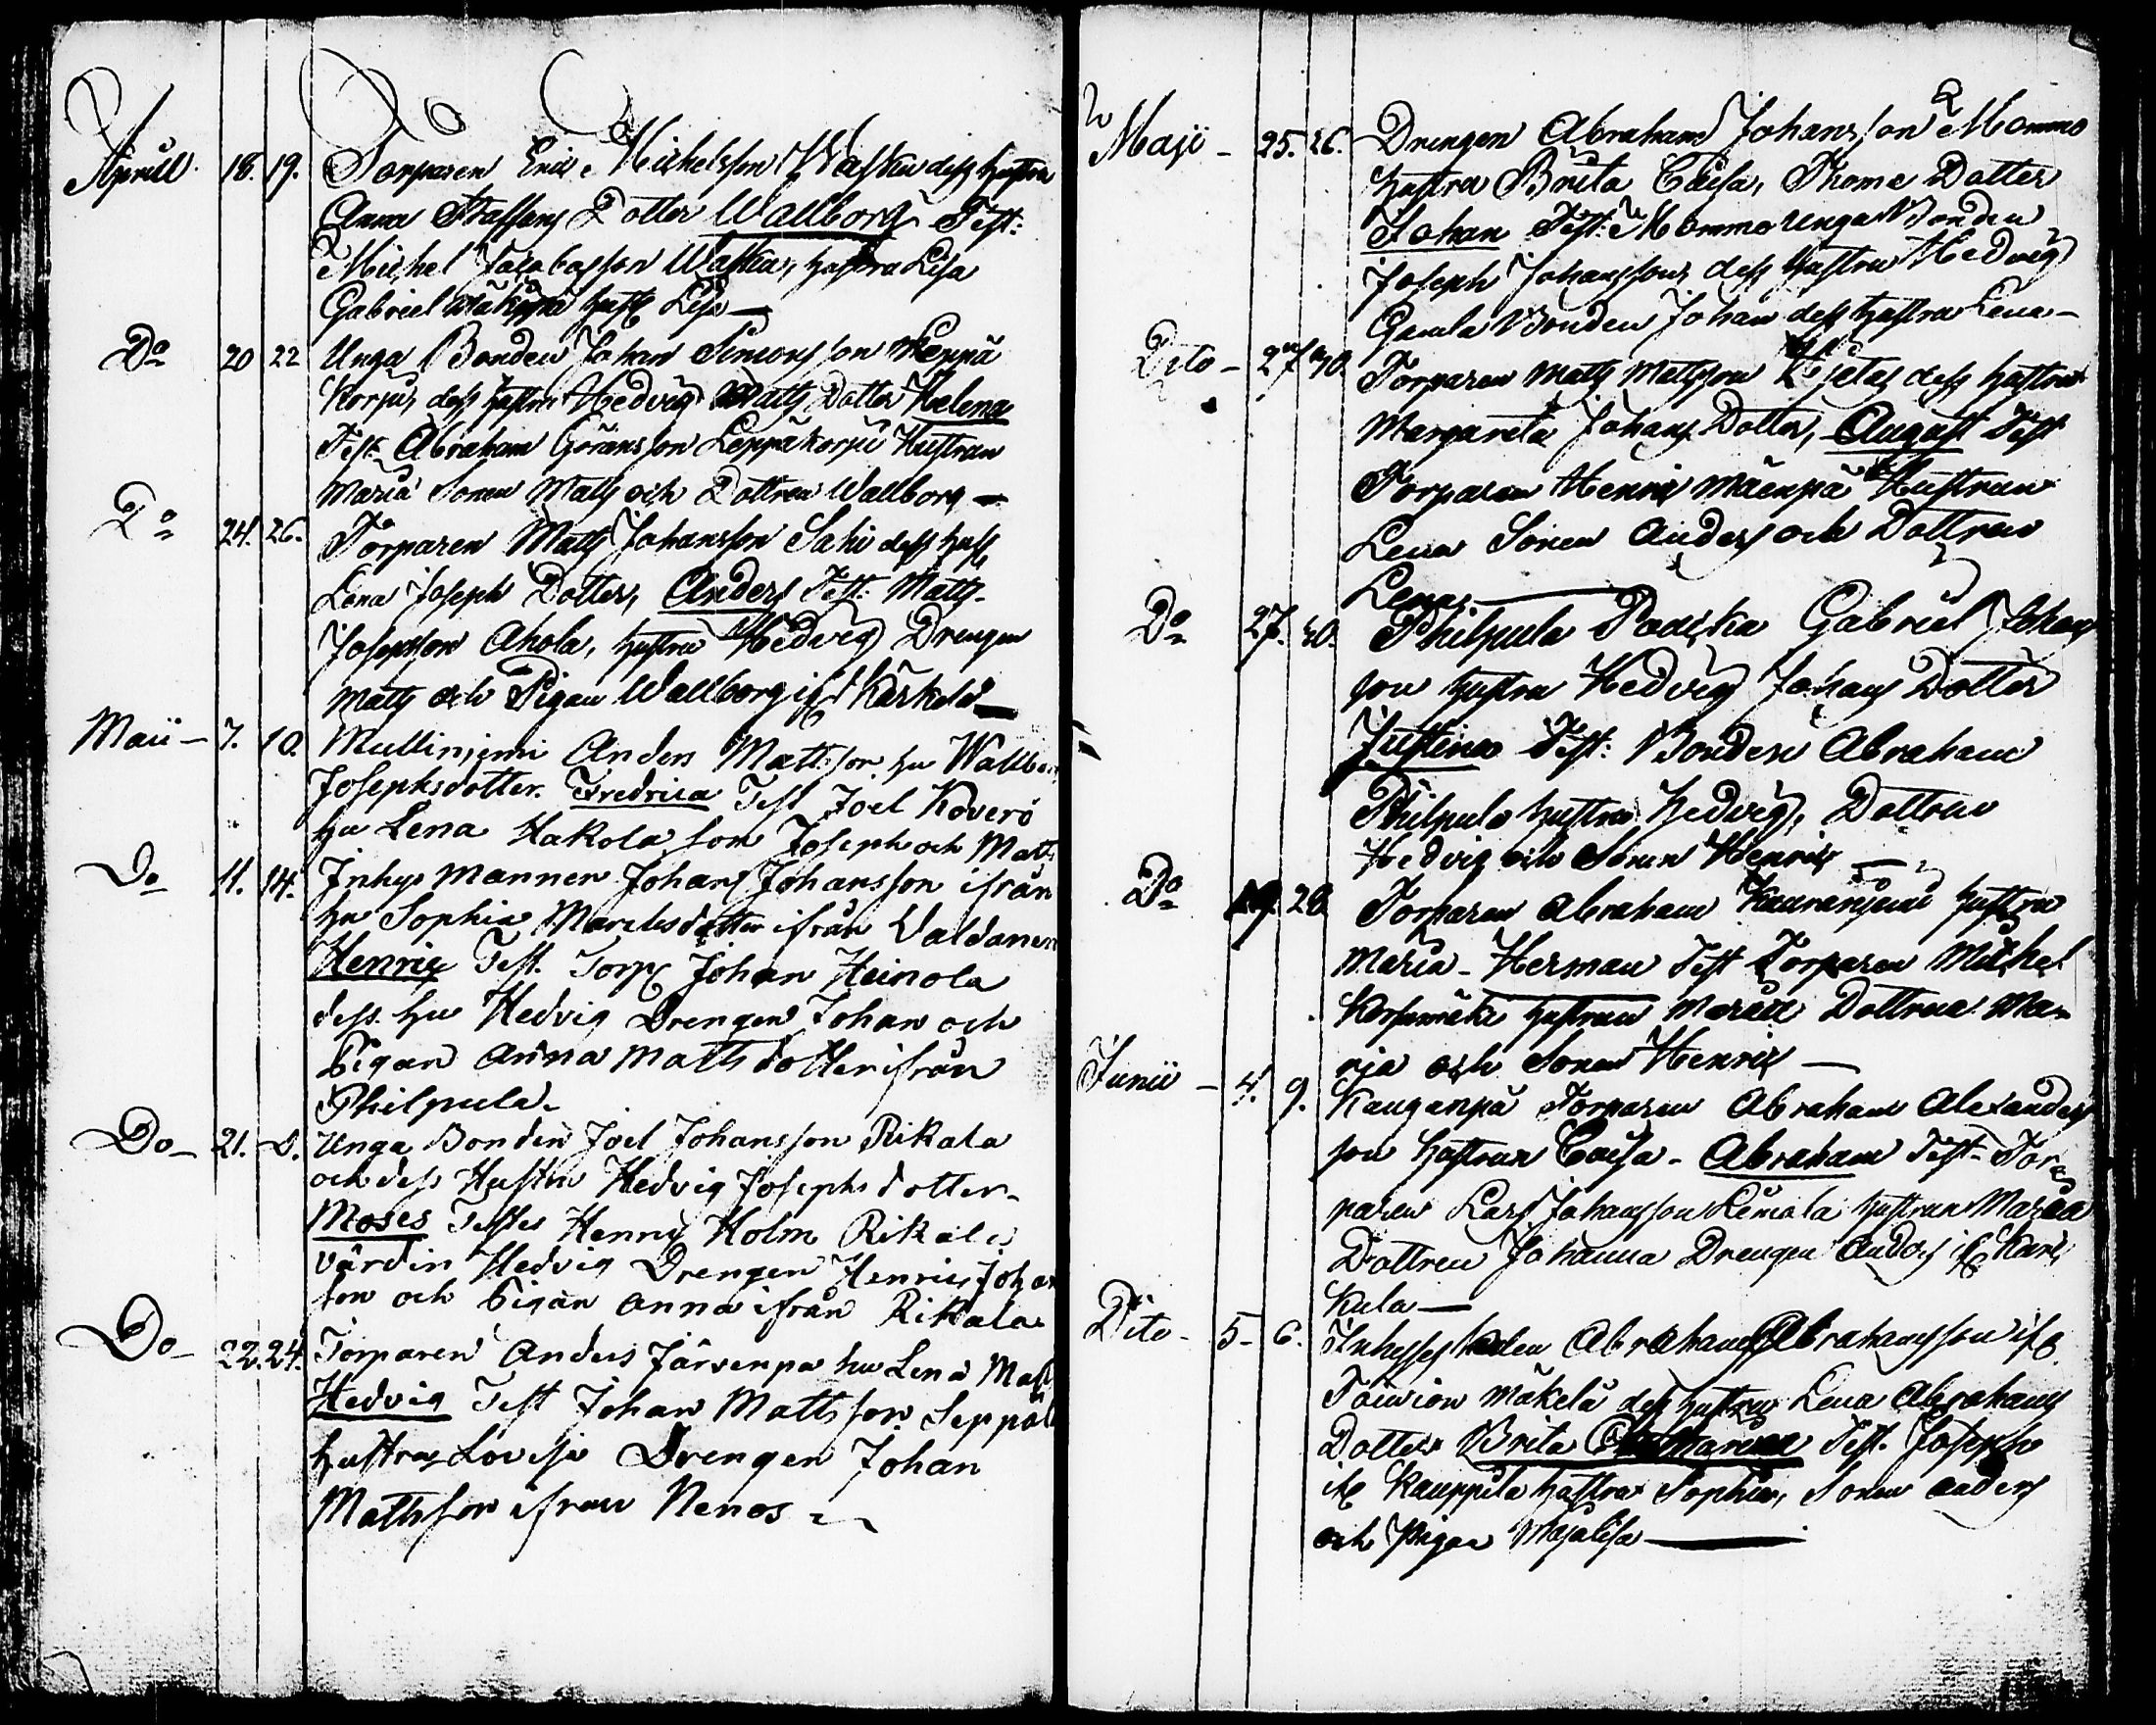 Aprill. 18. 19. Torparen Eric Michelsson Wasku dess hustru
Anna Staffans Dotter Wallborg Test:
Michel Jacobsson Wasku, hustru Lisa
Gabriel hust Lisa —
Do 20 22 Unga Bonden Johan Simonsson Leppä
Korju, dess hustru Hedvig Matts Dotter Helena
Test Abraham Göransson Leppäkorju Hustrun
Maria Sonen Matts och Dottren Wallborg —
Do 24. 26. Torparen Matts Johansson Sahi dess hust
Lena Joseph Dotter, Anders Test: Matts
Josephsson Ahola, hustru Hedvig Drengen
Matts och Pigan Wallborg if
Maii — 7. 10. Mullinjemi Anders Mattsson hu Wallbo
Josephsdotter. Fredrica Test Joel Koverö
hu Lena Hakola son Joseph och Matts
Do 11. 14. Inhys Mannen Johan Johansson ifrån
hu Sophia Marcksdotter ifrån Valdanen
Henric Test. Torp Johan Heinola
dess hu Hedvig Drengen Johan och
Pigan Anna Mattsdotter ifrån
Philpula.
Do — 21. D. Unga Bonden Joel Johansson Rikala
och dess Hustru Hedvig Josephsdotter
Moses Testes Henric Holm Rikala
värdin Hedvig Drengen Henric Johan
son och Pigan Anna ifrån Rikala
Do — 22. 24. Torparen Anders Järvenpä hu Lena Matts
Hedvig Test Johan Mattsson Seppäl
hustru Lovisa Drengen Johan
Mattsson ifrån Nenos
Maji — 25. 26. Drengen Abraham Johansson Mommo
hustru Brita Caisa, Thome Dotter
Johan Test: Mommo Unga Bonden
Joseph Johansson, dess hustru Hedvig
Gamla Bonden Johan dess hustru Lena —
Dito — 27 30. Torparen Matts Mattsson dess hustru
Margareta Johans Dotter, August Test
Torparen Henric Mäenpä Hustrun
Lena Sonen Anders och Dottren
Lena.
Do 27. 30. Philpula Gabriel Johans
son hustru Hedvig Johans Dotter
Justina Test: Bonden Abraham
Philpula hustru Hedvig, Dottren
Hedvig och Sonen Henric —
Do 19. 20 Torparen Abraham Kauranjemi hustru
Maria — Herman Test Torparen Michel
hustrun Maria Dottren Ma-
ria och Sonen Henric —
Junii — 4. 9. Kauganpä Torparen Abraham Alexanders
son hustrun Caisa — Abraham Test — Tor-
paren Lars Johansson hustrun Maria
Dottren Johanna Drengen Anders if Karis
Kula —
Dito — 5 — 6. Abraham Abrahamsson if
Toivion Mäkelä dess hustru Lena Abrahams
Dotter Brita Test. Joseph
if Kauppila hustru Sophia, Sonen Anders
och Pigan Majalisa —